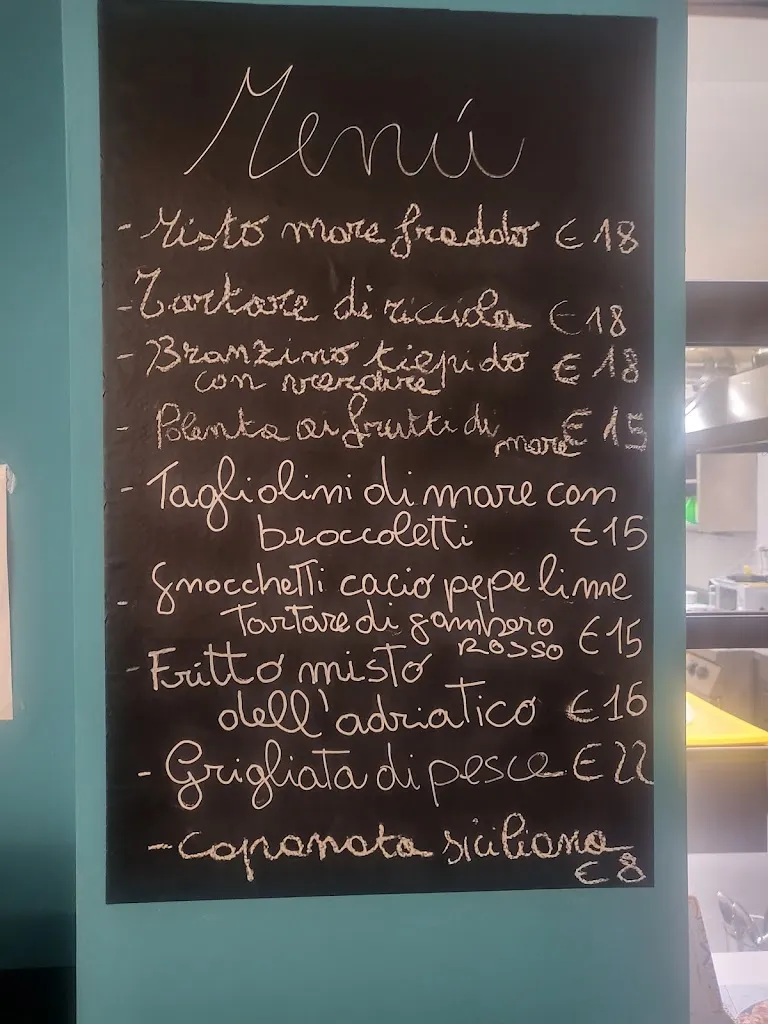 Menú
- Misto mare freddo € 18
- Tartare di ricciola € 18
- Branzino tiepido € 18
con verdure
- Polenta ai frutti di € 15
mare
- Tagliolini di mare con
broccoletti €15
- Gnocchetti cacio pepe lime
Tartare di gambero
ROSSO €15
- Fritto misto
dell'adriatico €16
- Grigliata di pesce €22
- Caponata siciliana
€ 8